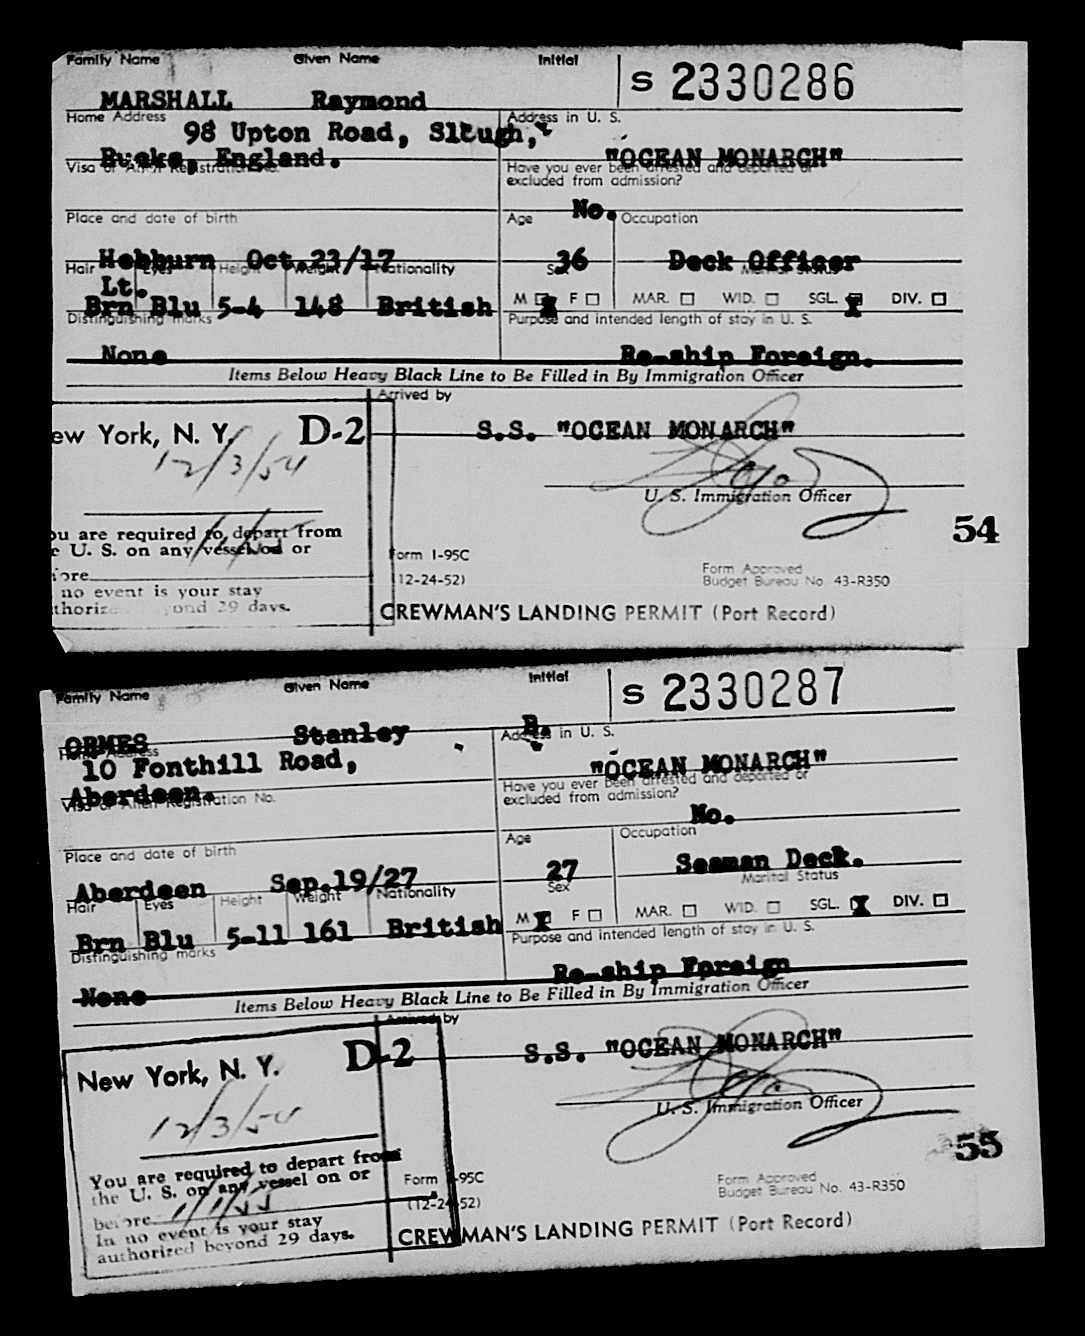 Family Name Given Name Initial
S 2330286
MARSHALL Raymond
Home Address Address in U. S.
98 Upton Road, Slough,
Bucks, England. "OCEAN MONARCH"
Visa or Alien Registration No. Have you ever been arrested and deported or
excluded from admission?
No.
Place and date of birth Age Occupation
Hebburn Oct.23/17 36 Deck Officer
Hair Eyes Height Weight Nationality Sex Marital Status
Lt.
Brn Blu 5-4 148 British M X F MAR. WID. SGL. X DIV.
Distinguishing marks Purpose and intended length of stay in U. S.
None Re-ship Foreign.
Items Below Heavy Black Line to Be Filled in By Immigration Officer
Arrived by
ew York, N. Y. D-2 S.S. "OCEAN MONARCH"
12/3/54
U. S. Immigration Officer
54
ou are required to depart from
e U. S. on any vessel on or
ore
no event is your stay
thoriz ond 29 days.
Form I-95C
(12-24-52)
Form Approved
Budget Bureau No. 43-R350
CREWMAN'S LANDING PERMIT (Port Record)
Family Name Given Name Initial
S 2330287
ORMES Stanley B.
Home Address Address in U. S.
10 Fonthill Road,
Aberdeen. "OCEAN MONARCH"
Visa or Alien Registration No. Have you ever been arrested and deported or
excluded from admission?
No.
Place and date of birth Age Occupation
Aberdeen Sep.19/27 27 Seaman Deck.
Hair Eyes Height Weight Nationality Sex Marital Status
Brn Blu 5-11 161 British M X F MAR. WID. SGL. X DIV.
Distinguishing marks Purpose and intended length of stay in U. S.
None Re-ship Foreign
Items Below Heavy Black Line to Be Filled in By Immigration Officer
Arrived by
New York, N. Y. D-2 S.S. "OCEAN MONARCH"
12/3/54
U. S. Immigration Officer
55
You are required to depart from
the U. S. on any vessel on or
before 1/1/55
In no event is your stay
authorized beyond 29 days.
Form I-95C
(12-24-52)
Form Approved
Budget Bureau No. 43-R350
CREWMAN'S LANDING PERMIT (Port Record)